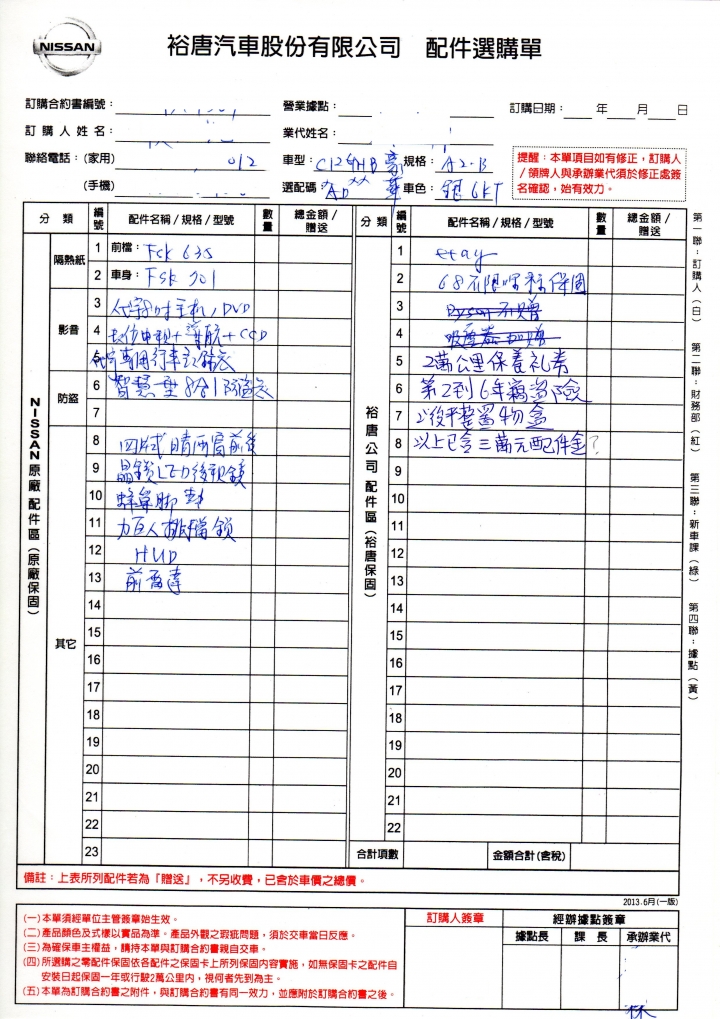 NISSAN
裕唐汽車股份有限公司 配件選購單
訂購合約書編號：
營業據點：
訂購日期： 年 月 日
訂購人姓名：
業代姓名：
聯絡電話：(家用) 012
車型：C12 5HB 豪華
規格：A2-B
(手機)
選配碼 "AD**
車色：銀 6KT
提醒：本單項目如有修正，訂購人
/領牌人與承辦業代須於修正處簽
名確認，始有效力。
分 類 編號 配件名稱/規格/型號 數量 總金額/贈送
分 類 編號 配件名稱/規格/型號 數量 總金額/贈送
NISSAN原廠配件區(原廠保固)
隔熱紙
1 前檔：Fsk 635
2 車身：FSK 701
影音
3 代宇8吋主机/DVD
4 數位電視+導航+CCD
5 代宇專用行車記錄器
防盜
6 智慧型8合1防盜器
7
其它
8 四片式晴雨窗前後
9 晶鑽LED後視鏡
10 蜂巢腳墊
11 力巨人排檔鎖
12 HUD
13 前雷達
14
15
16
17
18
19
20
21
22
23
裕唐公司配件區(裕唐保固)
1 etag
2 6年不限哩程保固
3 Dyson 不贈
4 吸塵器 加贈
5 2萬公里保養礼券
6 第2到6年竊盜險
7 後平整置物盒
8 以上已含三萬元配件金?
9
10
11
12
13
14
15
16
17
18
19
20
21
22
合計項數
金額合計(含稅)
第一聯：訂購人(白) 第二聯：財務部(紅) 第三聯：新車課(綠) 第四聯：據點(黃)
備註：上表所列配件若為「贈送」，不另收費，已含於車價之總價。
2013.6月(一版)
(一)本單須經單位主管簽章始生效。
(二)產品顏色及式樣以實品為準。產品外觀之瑕疵問題，須於交車當日反應。
(三)為確保車主權益，請持本單與訂購合約書親自交車。
(四)所選購之零配件保固依各配件之保固卡上所列保固內容實施，如無保固卡之配件自
安裝日起保固一年或行駛2萬公里內，視何者先到為主。
(五)本單為訂購合約書之附件，與訂購合約書有同一效力，並應附於訂購合約書之後。
訂購人簽章
經辦據點簽章
據點長 課 長 承辦業代
林